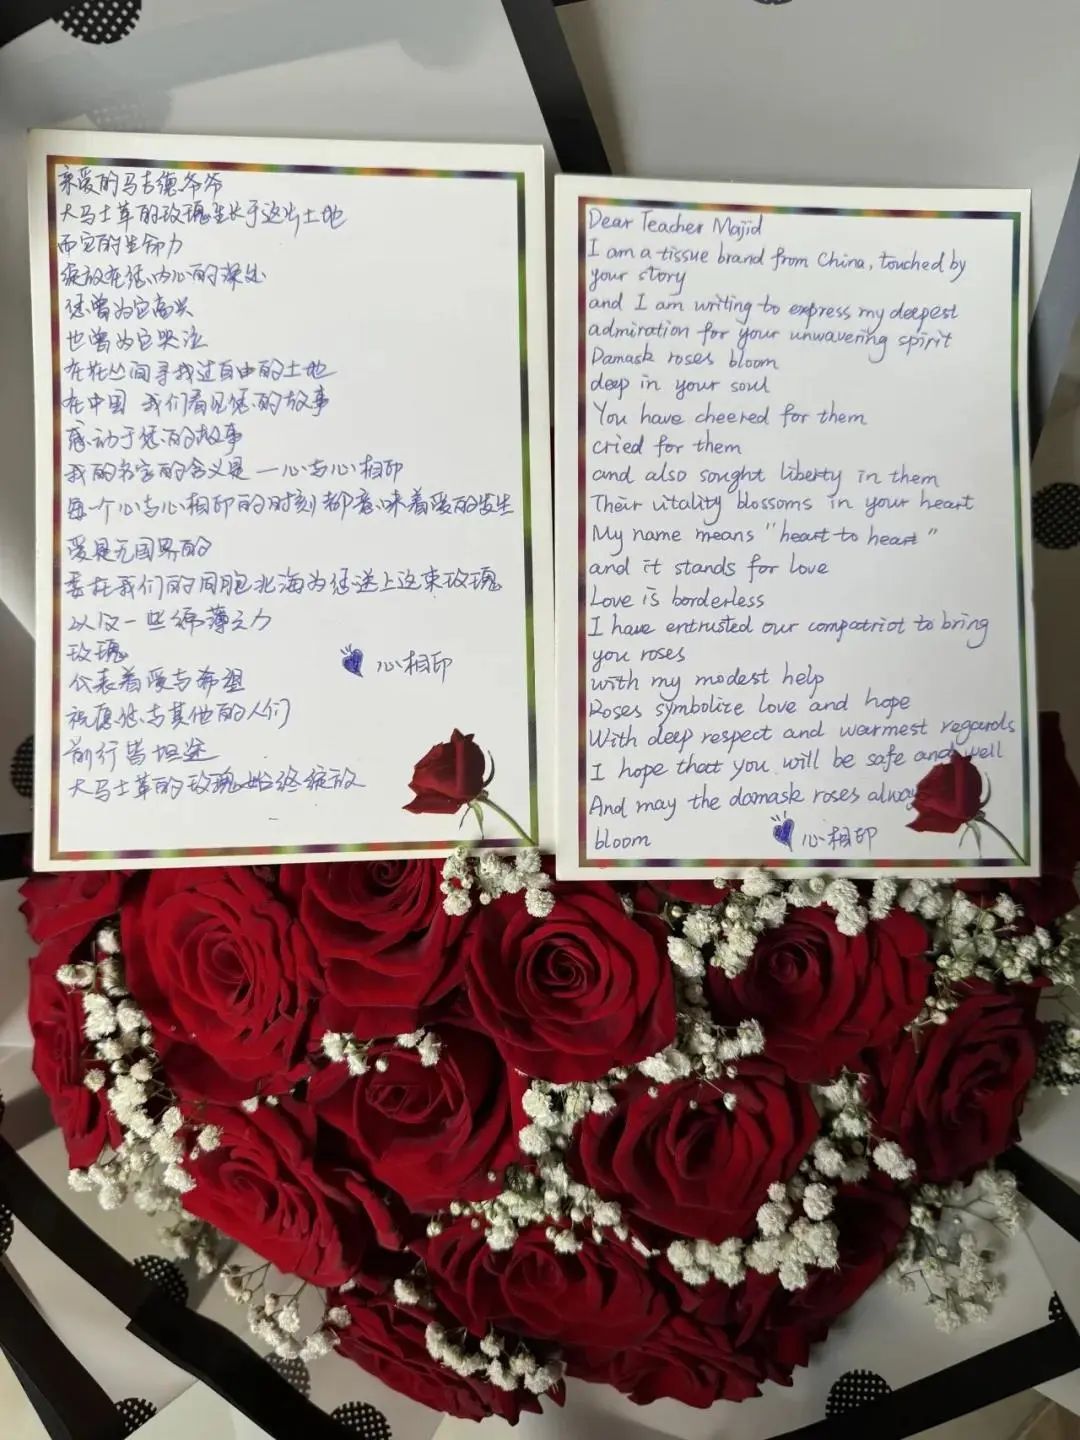 亲爱的马吉德爷爷
大马士革的玫瑰生长于这片土地
而它的生命力
绽放在您内心的深处
您曾为它高兴
也曾为它哭泣
在花丛间寻找过自由的土地
在中国 我们看见您的故事
感动于您的故事
我的名字的含义是一心与心相印
每一个心与心相印的时刻都意味着爱的发生
爱是无国界的
委托我们的同胞北海为您送上这束玫瑰
以及一些绵薄之力
玫瑰
代表着爱与希望
祝愿您与其他的人们
前行皆坦途
大马士革的玫瑰始终绽放
心相印
Dear Teacher Majid
I am a tissue brand from China, touched by
your story
and I am writing to express my deepest
admiration for your unwavering spirit
Damask roses bloom
deep in your soul
You have cheered for them
cried for them
and also sought liberty in them
Their vitality blossoms in your heart
My name means "heart to heart"
and it stands for love
Love is borderless
I have entrusted our compatriot to bring
you roses
with my modest help
Roses symbolize love and hope
With deep respect and warmest regards
I hope that you will be safe and well
And may the damask roses alway
bloom
心相印